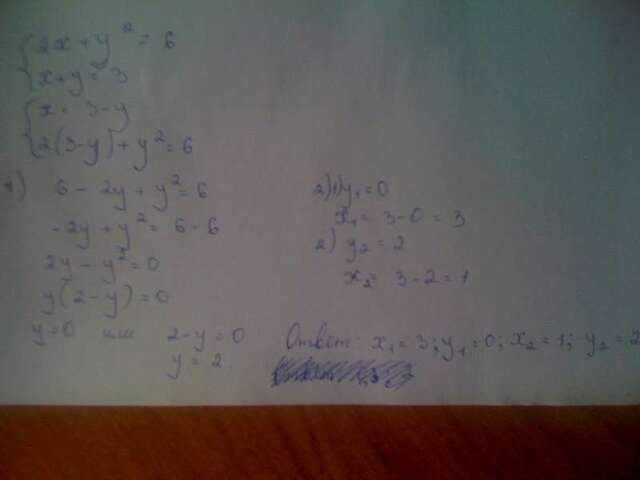 {2x + y² = 6
x + y = 3
{x = 3 - y
2(3 - y) + y² = 6
1) 6 - 2y + y² = 6
-2y + y² = 6 - 6
2y - y² = 0
y(2 - y) = 0
y = 0 или 2 - y = 0
y = 2
2) 1) y₁ = 0
x₁ = 3 - 0 = 3
2) y₂ = 2
x₂ = 3 - 2 = 1
Ответ: x₁ = 3; y₁ = 0; x₂ = 1; y₂ = 2